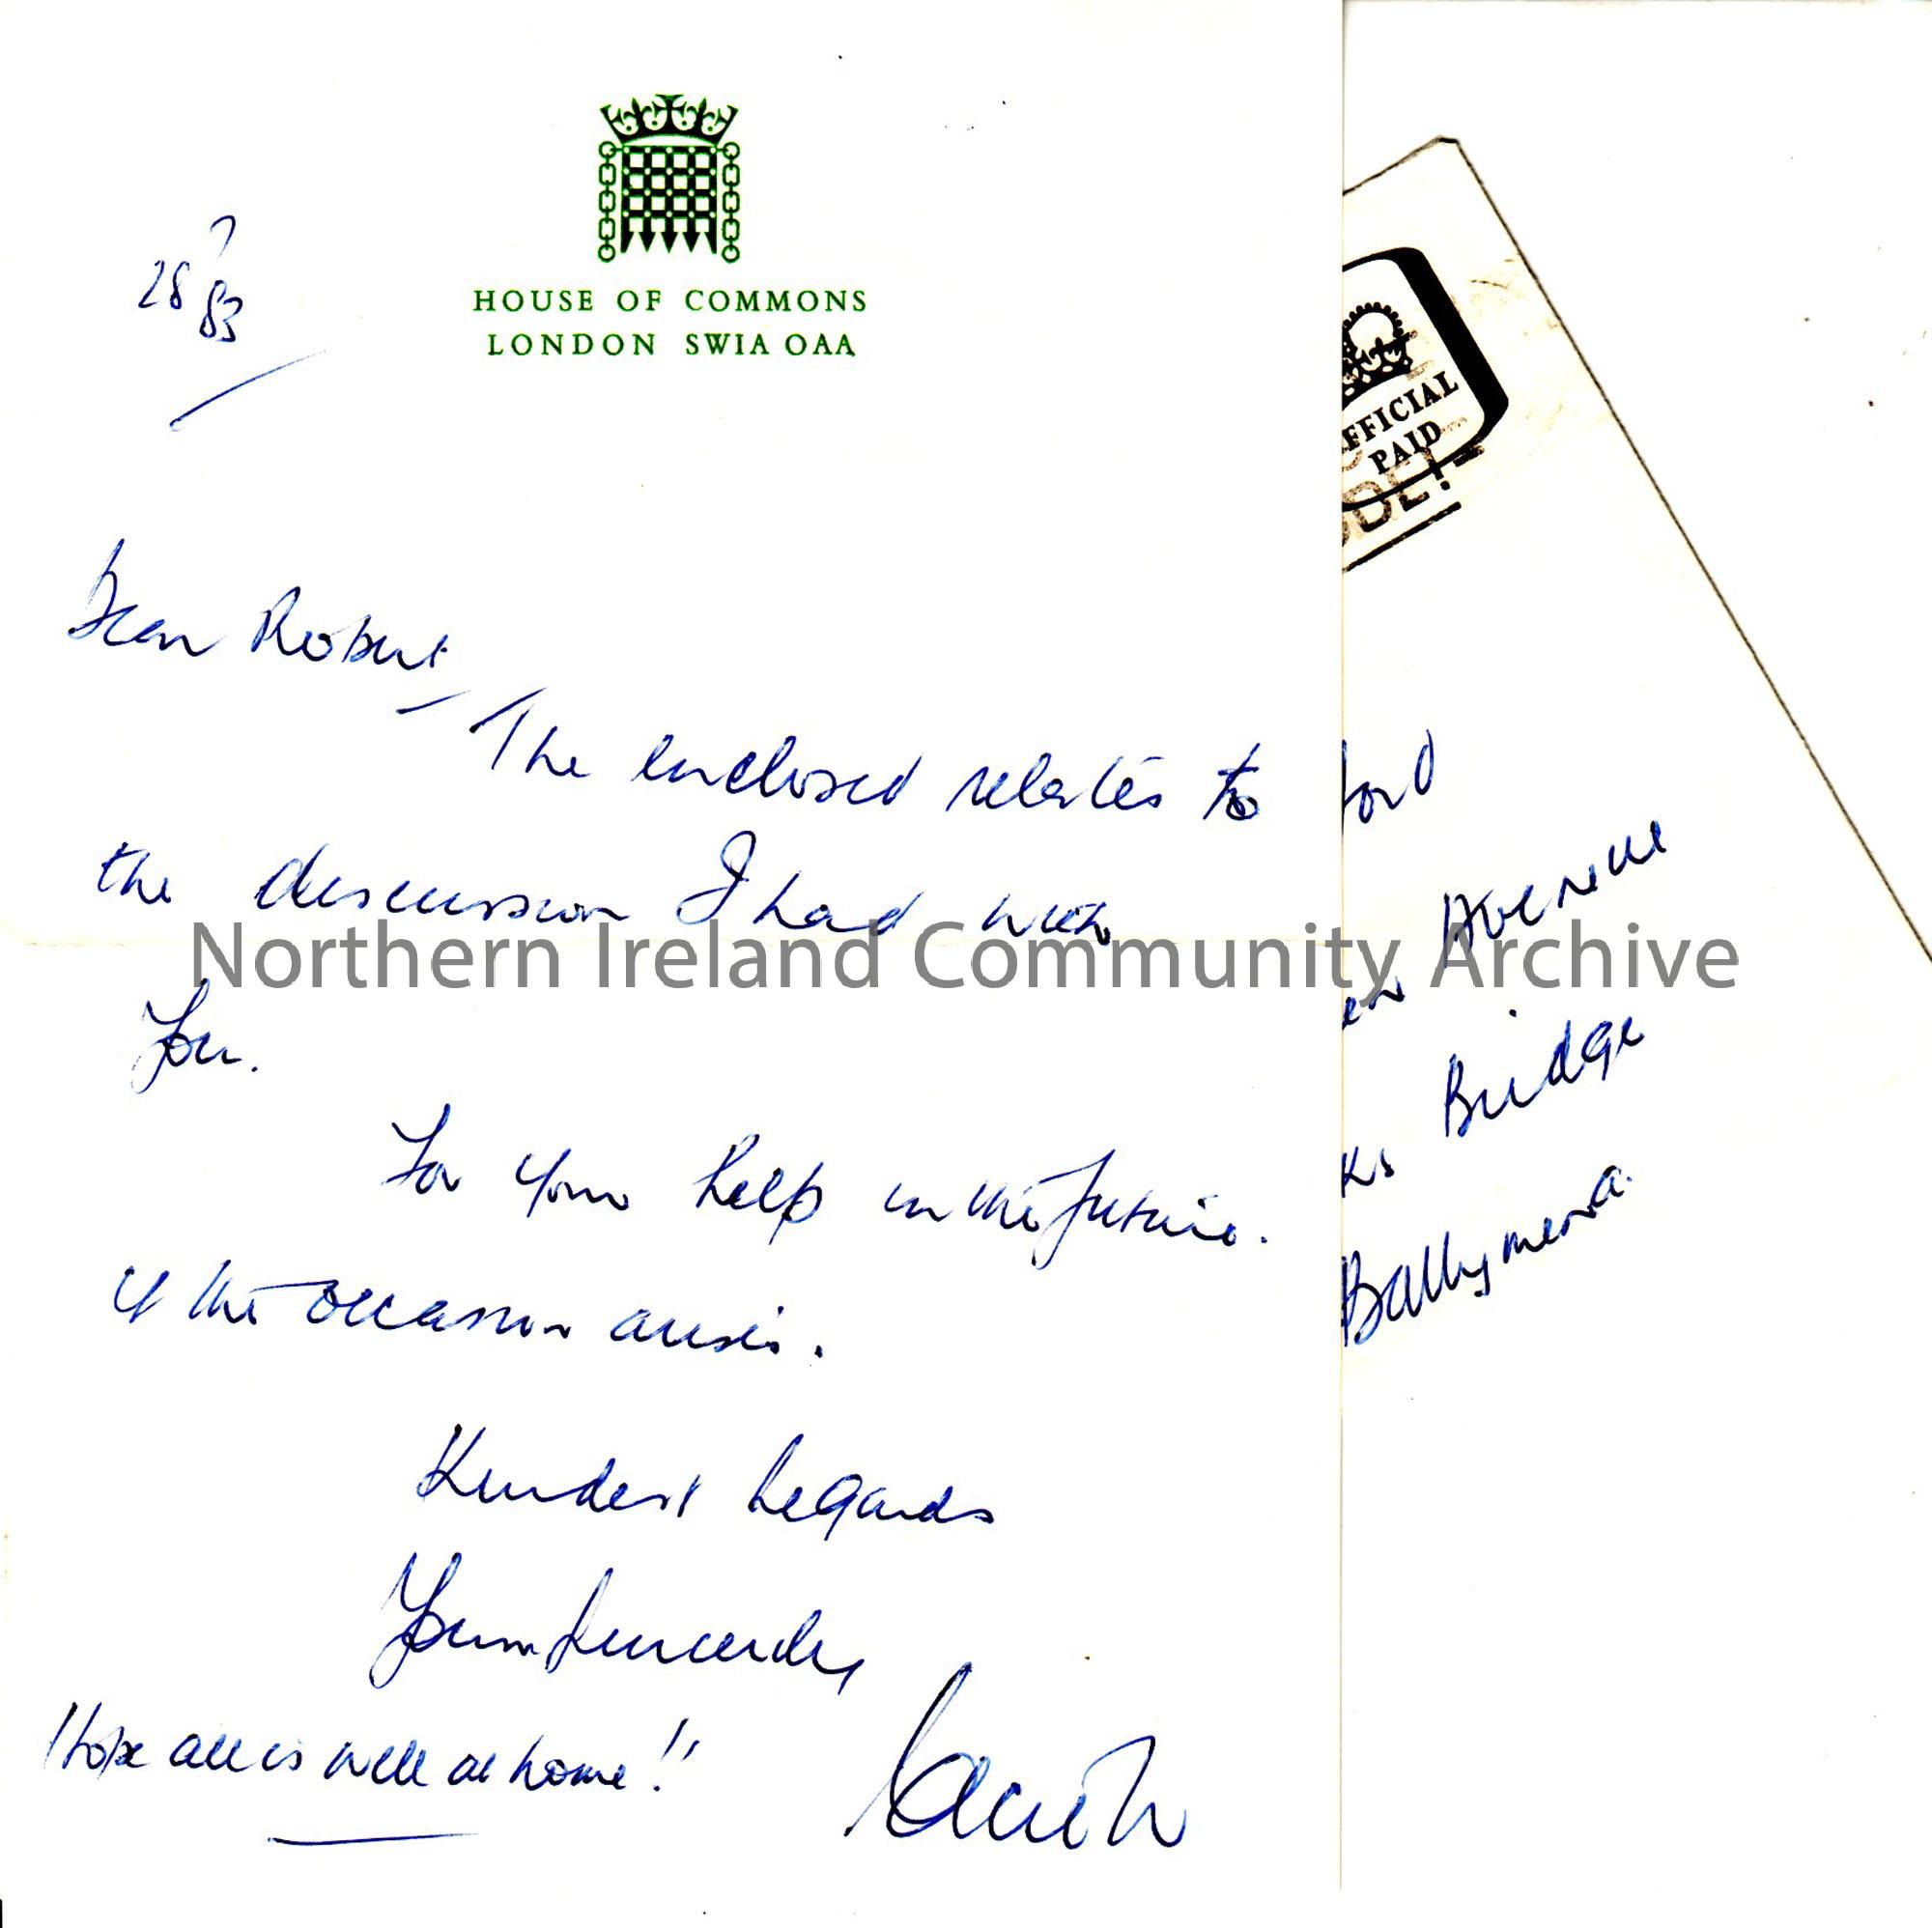 HOUSE OF COMMONS
LONDON SW1A 0AA
28 7 83
Dear Robert
The enclosed relates to
the discussion I had with
you.
For your help in the future.
if the occasion arises.
Kindest Regards
Yours sincerely
Hope all is well at home!!
FFICIAL
PAID
ford
Avenue
en
Bridge
ks
Ballymena.
Northern Ireland Community Archive